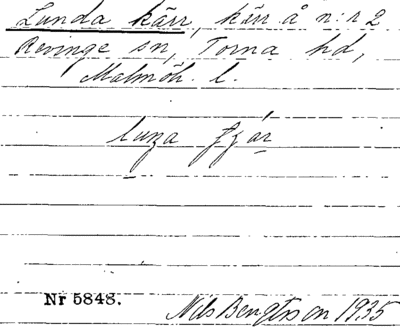 Lunda kärr, kärr å n:r 2
Revinge sn, Torna hd,
Malmöh. l.
Nr 5848.
Nils Bengtsson 1935